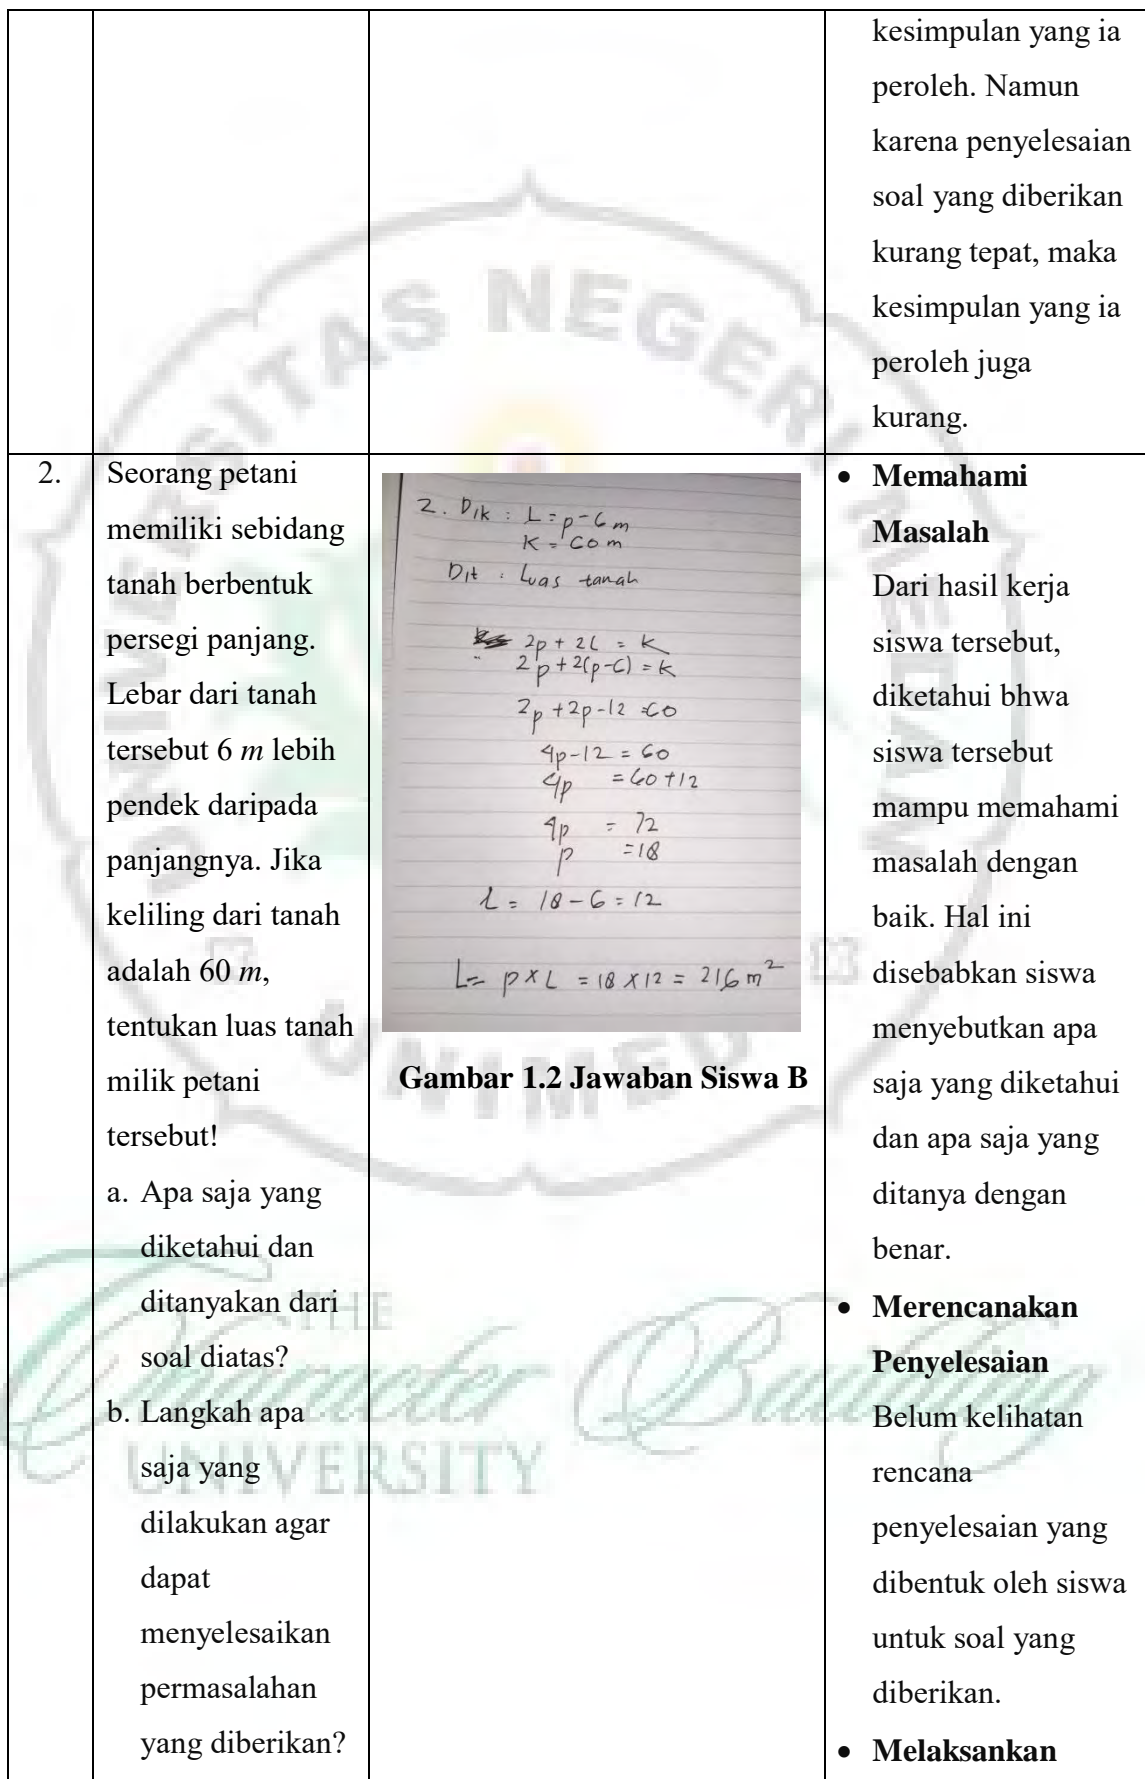 kesimpulan yang ia
peroleh. Namun
karena penyelesaian
soal yang diberikan
kurang tepat, maka
kesimpulan yang ia
peroleh juga
kurang.
2.
Seorang petani
memiliki sebidang
tanah berbentuk
persegi panjang.
Lebar dari tanah
tersebut 6 m lebih
pendek daripada
panjangnya. Jika
keliling dari tanah
adalah 60 m,
tentukan luas tanah
milik petani
tersebut!
a. Apa saja yang
diketahui dan
ditanyakan dari
soal diatas?
b. Langkah apa
saja yang
dilakukan agar
dapat
menyelesaikan
permasalahan
yang diberikan?
2. Dik : L = p - 6 m
K = 60 m
Dit : Luas tanah
2p + 2L = K
2p + 2(p-6) = K
2p + 2p - 12 = 60
4p - 12 = 60
4p = 60 + 12
4p = 72
p = 18
L = 18 - 6 = 12
L = p x L = 18 x 12 = 216 m²
Gambar 1.2 Jawaban Siswa B
• Memahami
Masalah
Dari hasil kerja
siswa tersebut,
diketahui bhwa
siswa tersebut
mampu memahami
masalah dengan
baik. Hal ini
disebabkan siswa
menyebutkan apa
saja yang diketahui
dan apa saja yang
ditanya dengan
benar.
• Merencanakan
Penyelesaian
Belum kelihatan
rencana
penyelesaian yang
dibentuk oleh siswa
untuk soal yang
diberikan.
• Melaksankan
UNIVERSITAS NEGERI MEDAN
UNIMED
THE
Character Building
UNIVERSITY